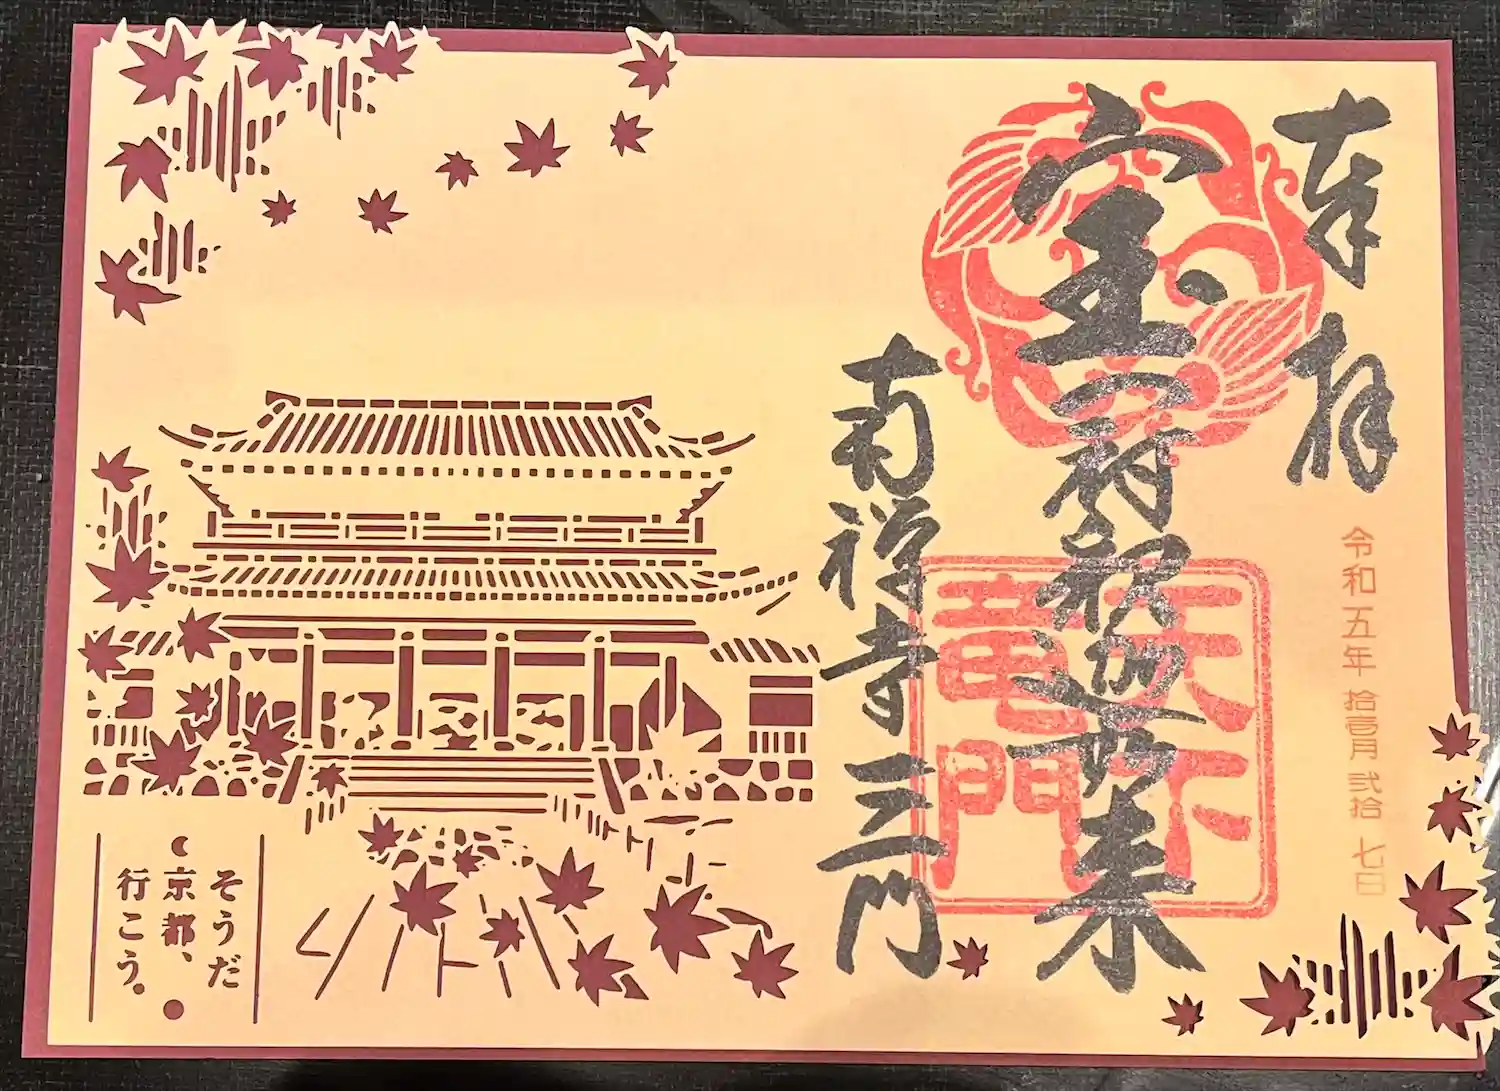 奉拝
令和五年 拾壱月 弐拾 七日
宝冠釈迦如来
天下
竜門
南禅寺三門
そうだ
京都、
行こう。